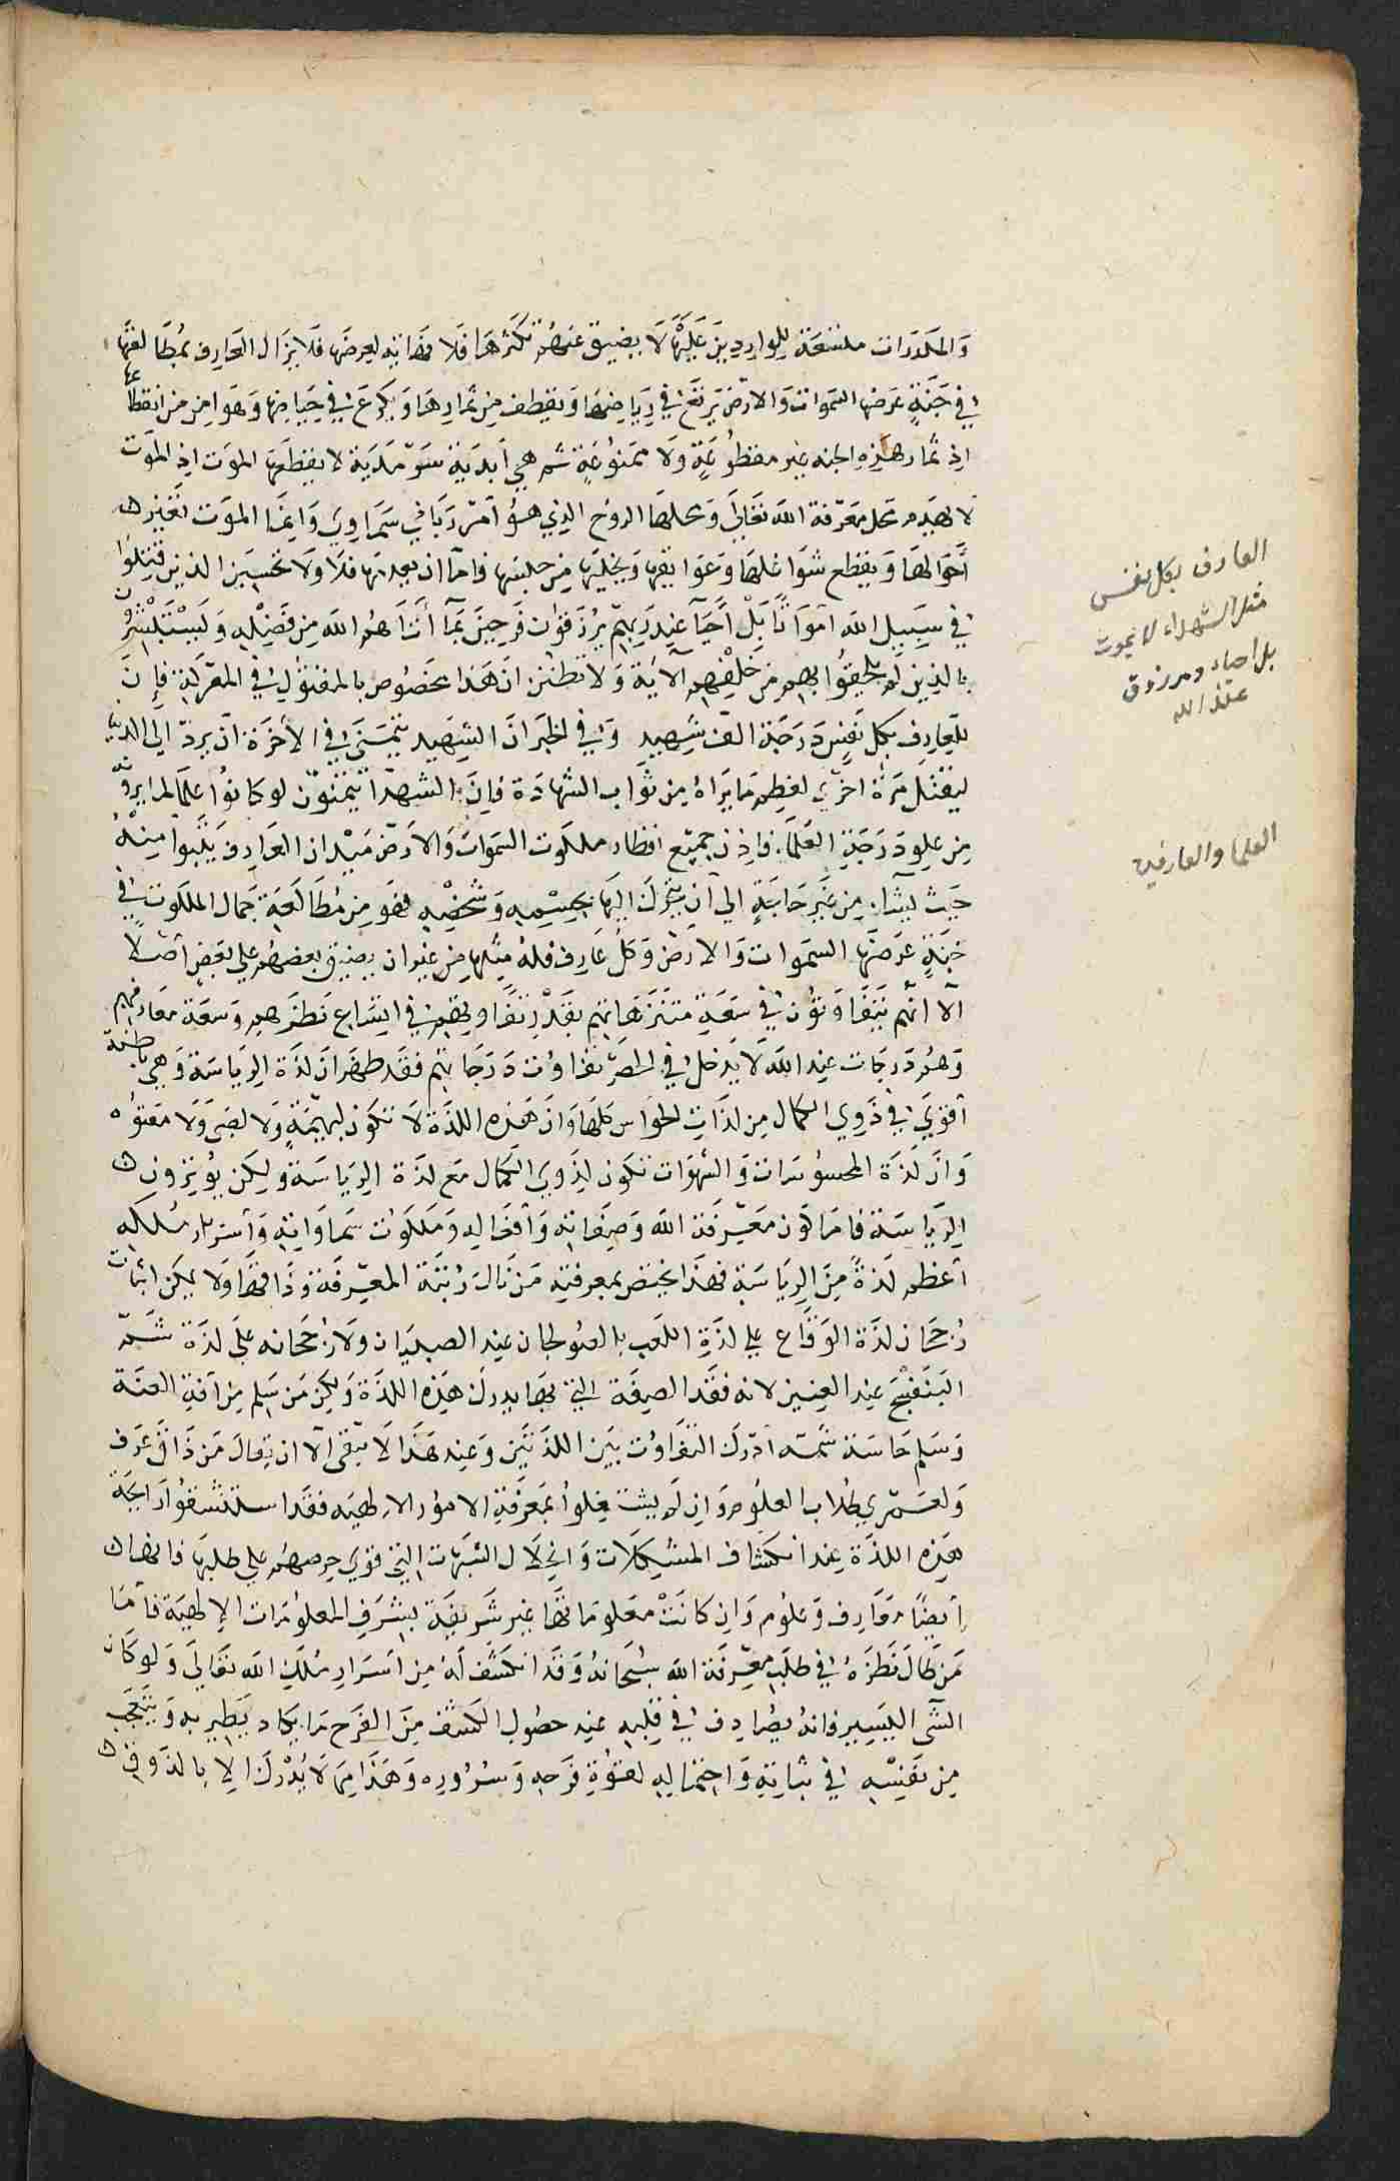 والمكدرات متسعة للواردين عليها لا يضيق عنهم بكثرها فلا نهاية لعرضها فلا يزال العارف بمطالعتها
في جنة عرضها السموات والارض يرتع في رياضها ويقطف من ثمارها ويكرع في حياضها وهو امن من انقطاعها
اذ ثمار هذه الجنه غير مقطوعة ولا ممنوعة ثم هي ابدية سرمدية لا يقطعها الموت اذ الموت
لا يهدم محل معرفة الله تعالى ومحلها الروح الذي هو امر رباني سماوي وانما الموت تغير
احوالها ويقطع شواغلها وعوايقها ويخليها من حبسها فاما ان يعدمها فلا ولا تحسبن الذين قتلوا
في سبيل الله امواتا بل احيا عند ربهم يرزقون فرحين بما اتاهم الله من فضله ويستبشرون
بالذين لم يلحقوا بهم من خلفهم الاية ولا تظنن ان هذا مخصوص بالمقتول في المعركة فان
للعارف بكل نفس درجة الف شهيد وفي الخبر ان الشهيد يتمنى في الاخرة ان يرد الى الدنيا
ليقتل مرة اخرى لعظم ما يراه من ثواب الشهادة فان الشهدا يتمنون لو كانوا علما لما يرونه
من علو درجة العلما فاذن جميع اقطار ملكوت السموات والارض ميدان العارف يتبوا منه
حيث يشا من غير حاجة الى ان يتحرك اليها بجسمه وشخصه فهو من مطالعة جمال الملكوت في
جنة عرضها السموات والارض وكل عارف فله مثلها من غير ان يضيق بعضهم على بعض اصلا
الا انهم يتفاوتون في سعة متنزهاتهم بقدر تفاوتهم في اتساع نظرهم وسعة معارفهم
وهم درجات عند الله لا يدخل في الحصر تفاوت درجاتهم فقد ظهر ان لذة الرياسة وهي باطنة
اقوى في ذوي الكمال من لذات الحواس كلها وان هذه اللذة لا تكون لبهيمة ولا لصبي ولا معتوه
وان لذة المحسوسات والشهوات تكون لذوي الكمال مع لذة الرياسة ولكن يوثرون
الرياسة فاما كون معرفة الله وصفاته وافعاله وملكوت سماواته واسرار ملكه
اعظم لذة من الرياسة فهذا يختص بمعرفته من نال رتبة المعرفة وذاقها ولا يمكن اثبات
رجحان لذة الوقاع على لذة اللعب بالصولجان عند الصبيان ولا رجحانه على لذة شم
البنفسج عند العنين لانه فقد الصفة التي بها يدرك هذه اللذة ولكن من سلم من افة العنة
وسلم حاسة شمه ادرك التفاوت بين اللذتين وعند هذا لا يبقى الا ان يقال من ذاق عرف
ولعمري طلاب العلوم وان لم يشتغلوا بمعرفة الامور الالهيه فقد استنشقوا رايحة
هذه اللذة عند انكشاف المشكلات وانحلال الشبهات التي قوي حرصهم على طلبها فانها
ايضا معارف وعلوم وان كانت معلوماتها غير شريفة بشرف المعلومات الالهية فاما
من طال نظره في طلب معرفة الله سبحانه وقد انكشف له من اسرار ملك الله تعالى ولو كان
الشي اليسير فانه يصادف في قلبه عند حصول الكشف من الفرح ما يكاد يطير به ويتعجب
من نفسه في ثباته واحتماله لقوة فرحه وسروره وهذا مما لا يدرك الا بالذوق
العارف بكل نفس
مثل الشهداء لا يموت
بل احياء ومرزوق
عند الله
العلما والعارفين